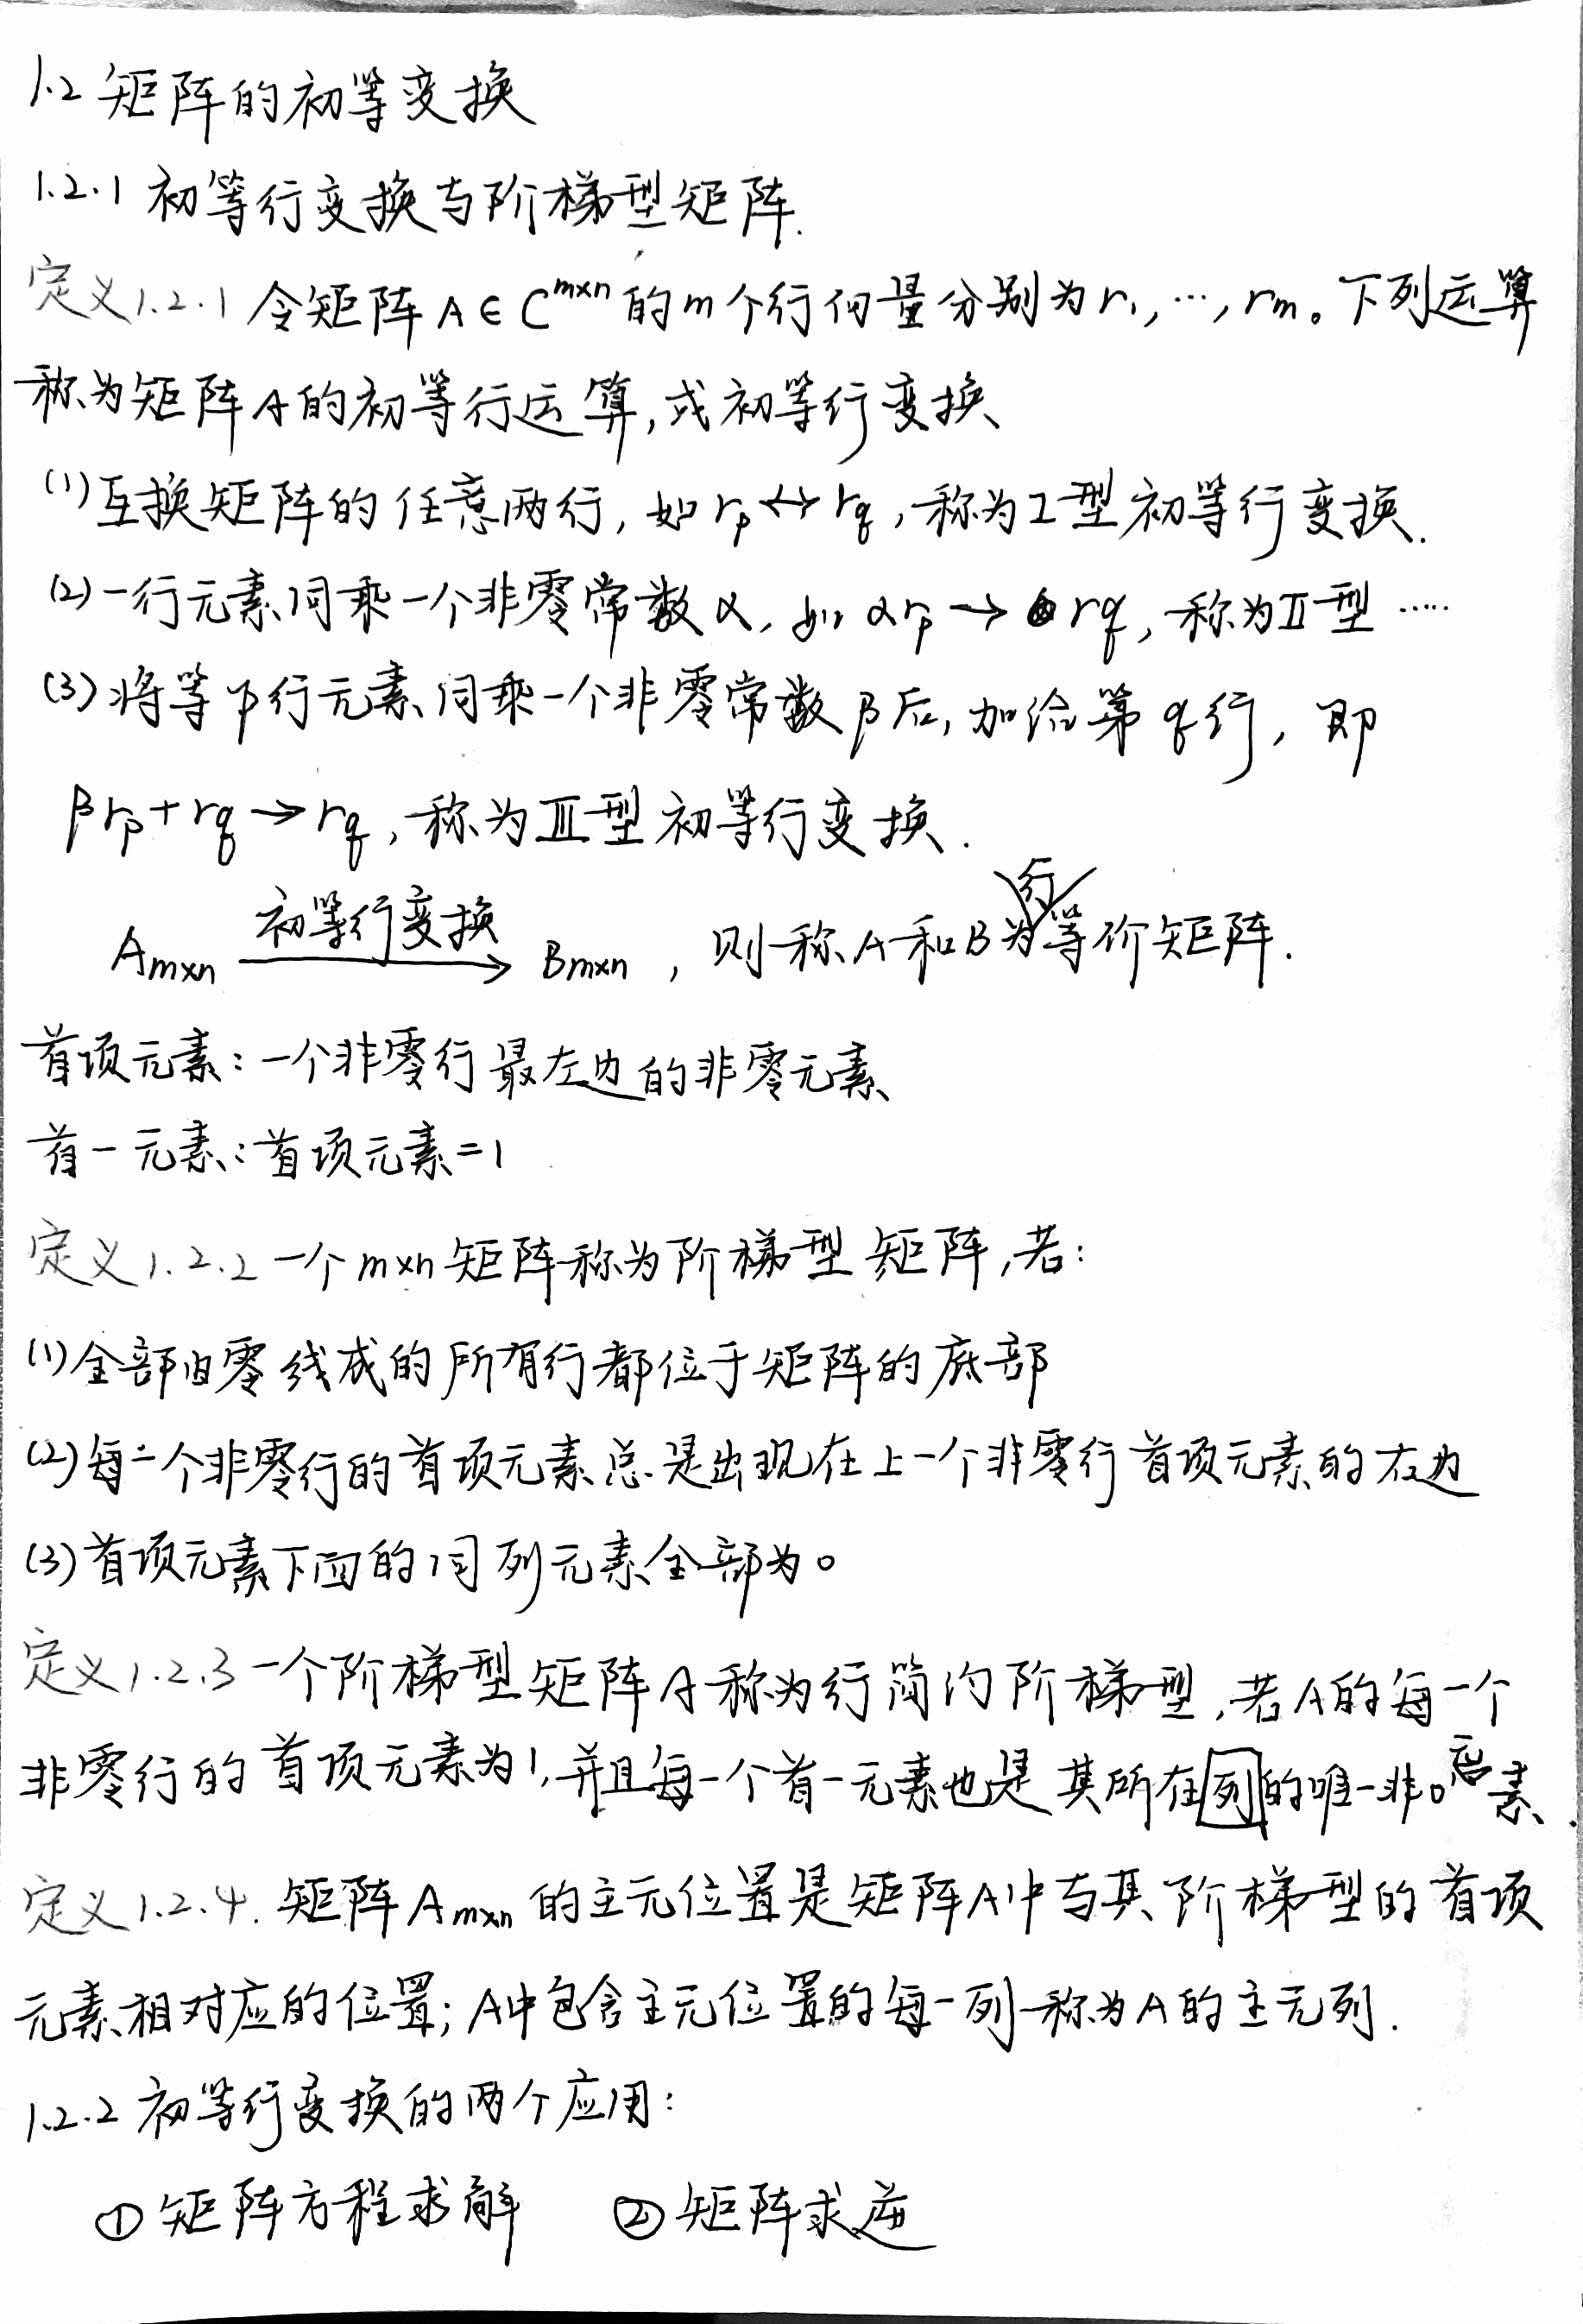 1.2 矩阵的初等变换
1.2.1 初等行变换与阶梯型矩阵.
定义1.2.1 令矩阵 A∈C^{m×n} 的m个行向量分别为r₁,…,rₘ。下列运算
称为矩阵A的初等行运算,或初等行变换
(1)互换矩阵的任意两行,如 r_p↔r_q,称为I型初等行变换.
(2)一行元素同乘一个非零常数α,如 αr_p→r_q,称为II型……
(3)将等p行元素同乘一个非零常数β后,加给第q行,即
βr_p+r_q→r_q,称为III型初等行变换.
行
初等行变换
A_{m×n} → B_{m×n},则称A和B为等价矩阵.
首项元素:一个非零行最左边的非零元素
首一元素:首项元素=1
定义1.2.2 一个m×n矩阵称为阶梯型矩阵,若:
(1)全部由零线成的所有行都位于矩阵的底部
(2)每一个非零行的首项元素总是出现在上一个非零行首项元素的右边
(3)首项元素下面的同列元素全部为0
定义1.2.3 一个阶梯型矩阵A称为行简约阶梯型,若A的每一个
非零行的首项元素为1,并且每一个首一元素也是其所在列的唯一非0元素.
定义1.2.4. 矩阵A_{m×n}的主元位置是矩阵A中与其阶梯型的首项
元素相对应的位置;A中包含主元位置的每一列称为A的主元列.
1.2.2 初等行变换的两个应用:
①矩阵方程求解 ②矩阵求逆